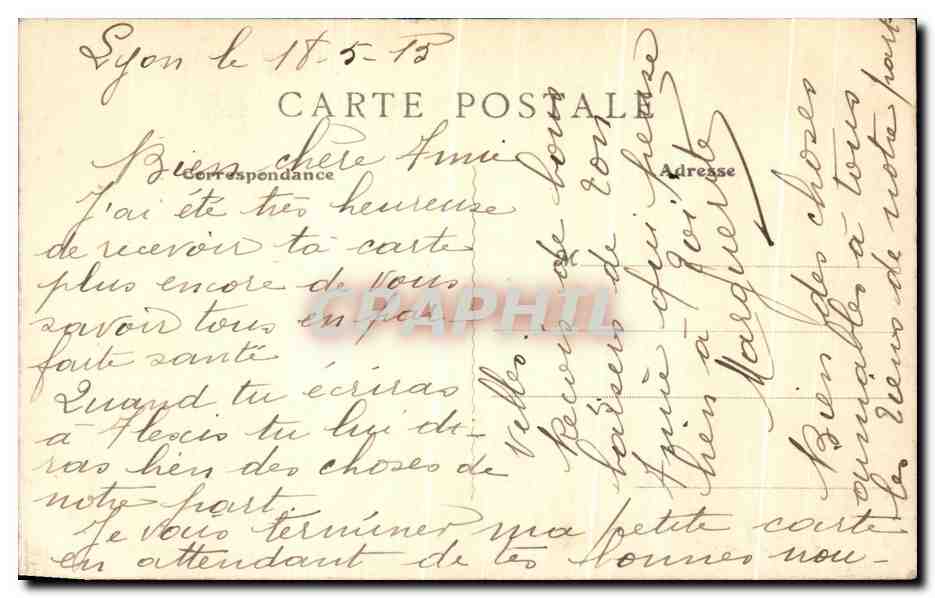 Lyon le 18-5-15
CARTE POSTALE
Correspondance
Adresse
Bien chère Amie
J'ai été très heureuse
de recevoir ta carte
plus encore de vous
savoir tous en par-
faite santé
Quand tu écriras
à Alexis tu lui di-
ras bien des choses de
notre part.
Je vais terminer ma petite carte
en attendant de tes bonnes nou-
velles.
Recois de bons
baisers de ton
Amie qui pense
bien à Toi
Marguerite
Bien des choses
aimables à tous
les tiens de notre part
M
CPAPHIL